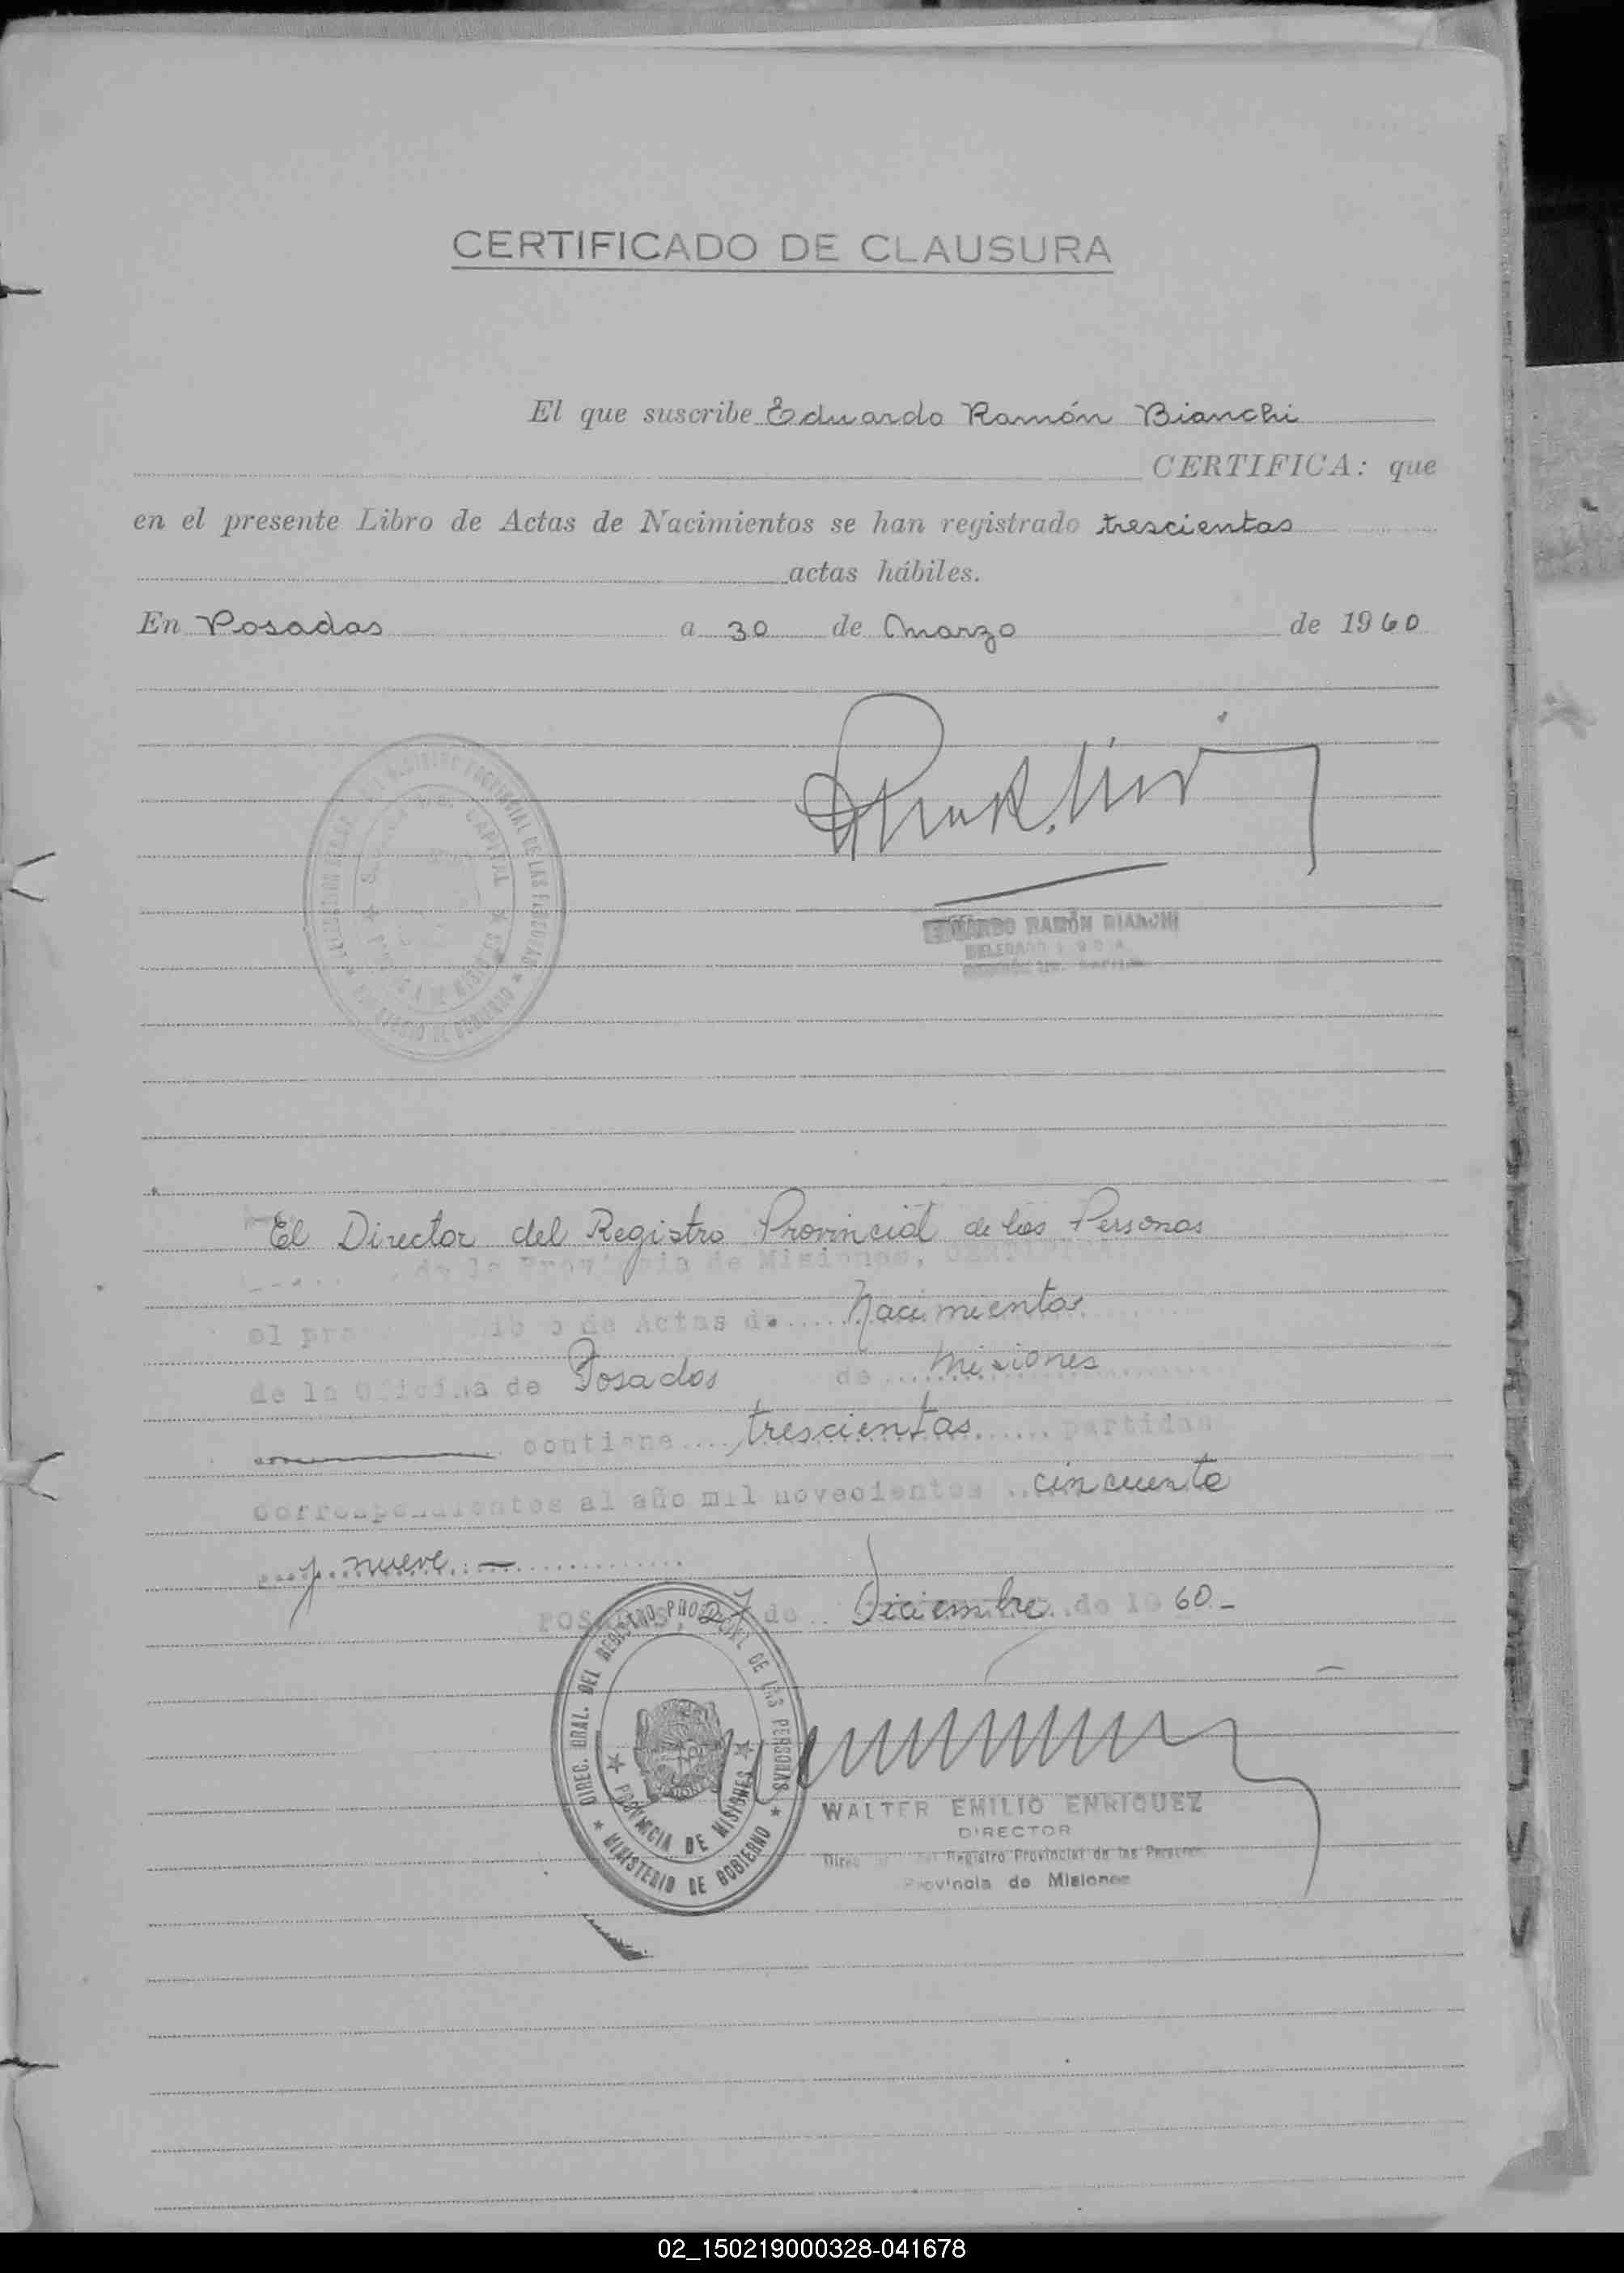 CERTIFICADO DE CLAUSURA
El que suscribe Eduardo Ramón Bianchi
CERTIFICA: que
en el presente Libro de Actas de Nacimientos se han registrado trescientas
actas hábiles.
En Posadas a 30 de Marzo de 1960
EDUARDO RAMÓN BIANCHI
El Director del Registro Provincial de las Personas
de la Provincia de Misiones,
Libro de Actas de Nacimientos
de la Oficina de Posadas de Misiones
contiene trescientas partidas
correspondientes al año mil novecientos cincuenta
y nueve.
POSADAS, 27 de Diciembre de 1960.-
DIREC. GRAL. DEL REGISTRO PROVINCIAL DE LAS PERSONAS
PROVINCIA DE MISIONES
MINISTERIO DE GOBIERNO
WALTER EMILIO ENRIQUEZ
DIRECTOR
Registro Provincial de las Personas
Provincia de Misiones
02_150219000328-041678